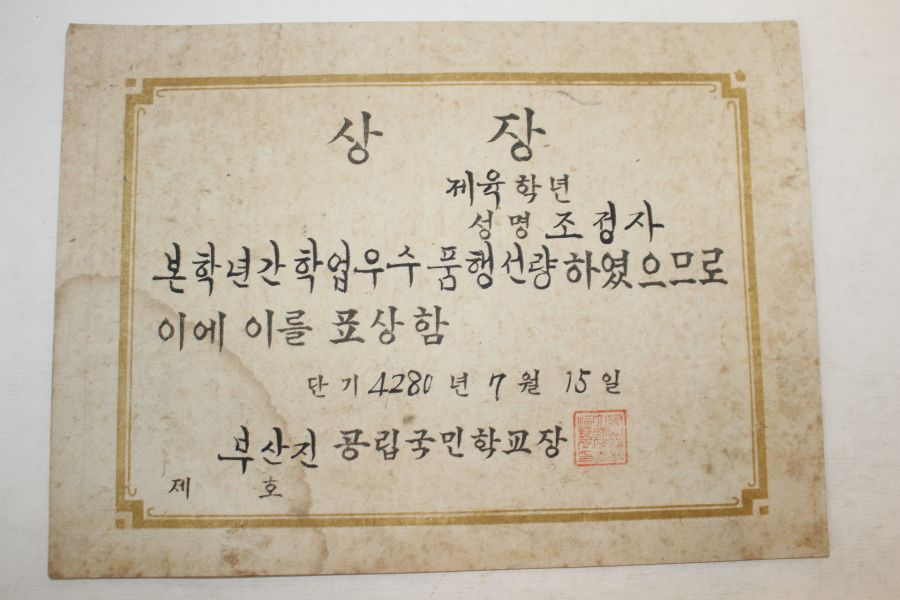 상 장
제육학년
성명 조정자
본학년간학업우수품행선량하였으므로
이에 이를 표상함
단기 4280년 7월 15일
부산진 공립국민학교장
제 호